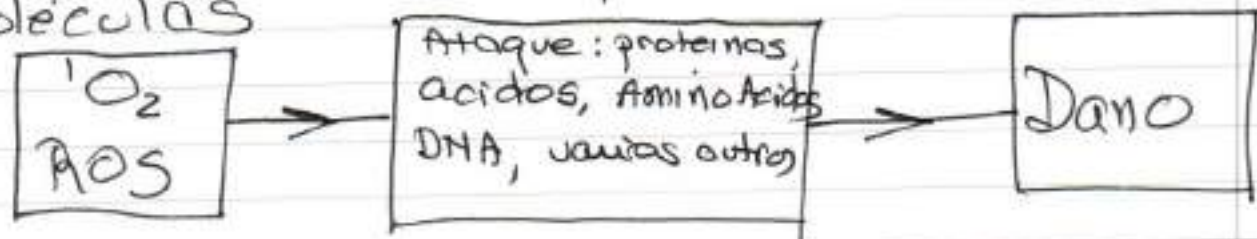 léculas
¹O₂
ROS
Ataque: proteinas,
acidos, Amino Acidos
DNA, varias outros
Dano